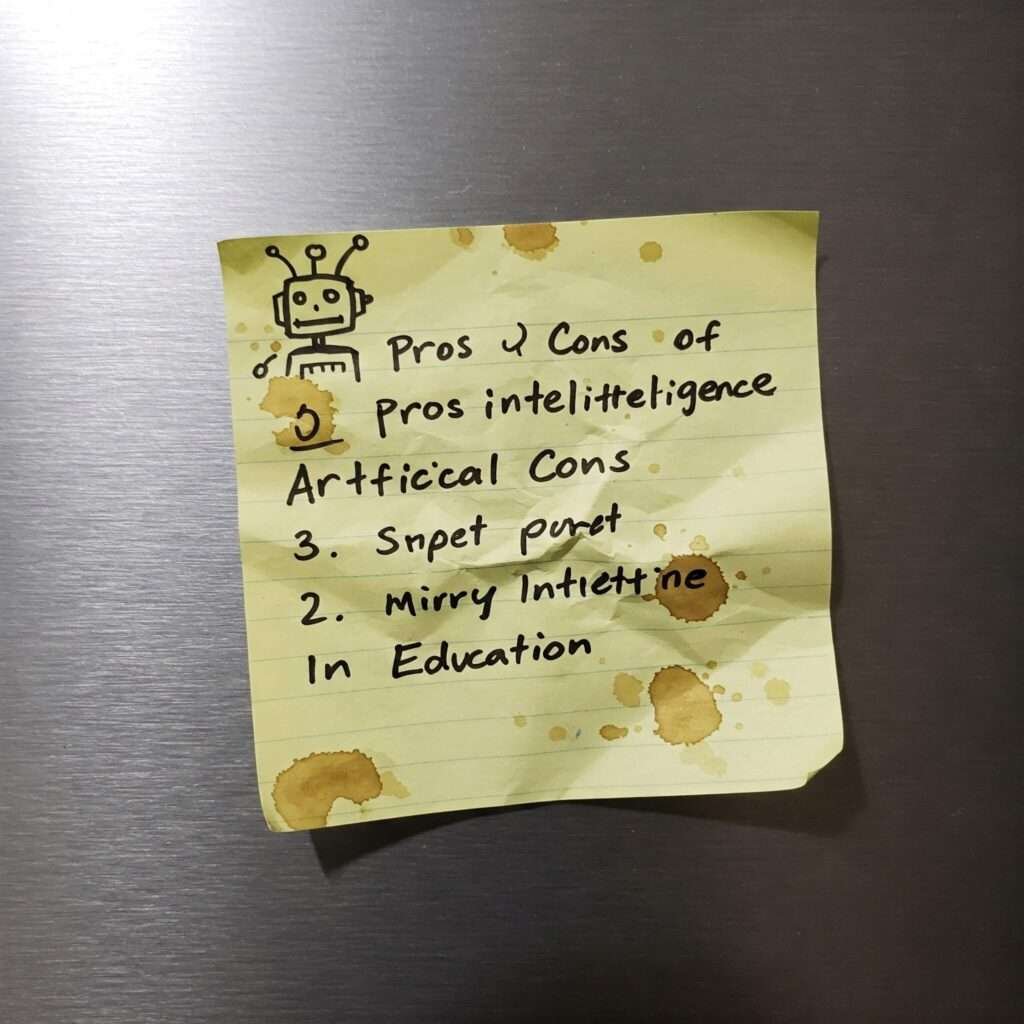 Pros & Cons of
Pros intelitteligence
Artficical Cons
3. Snpet
2. Mirry Intiettine
In Education